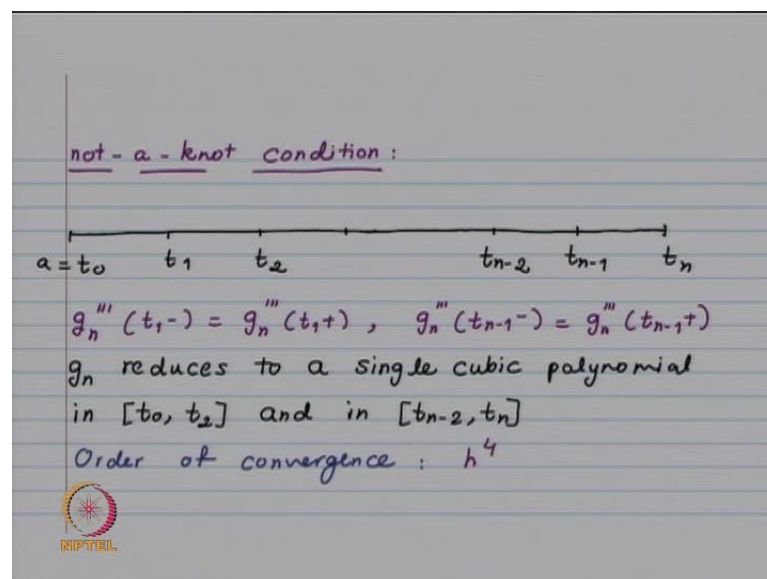 not-a-knot condition :
a = t₀ t₁ t₂ tₙ₋₂ tₙ₋₁ tₙ
gₙ''' (t₁-) = gₙ''' (t₁+) , gₙ''' (tₙ₋₁-) = gₙ''' (tₙ₋₁+)
gₙ reduces to a single cubic polynomial
in [t₀, t₂] and in [tₙ₋₂, tₙ]
Order of convergence : h⁴
NPTEL